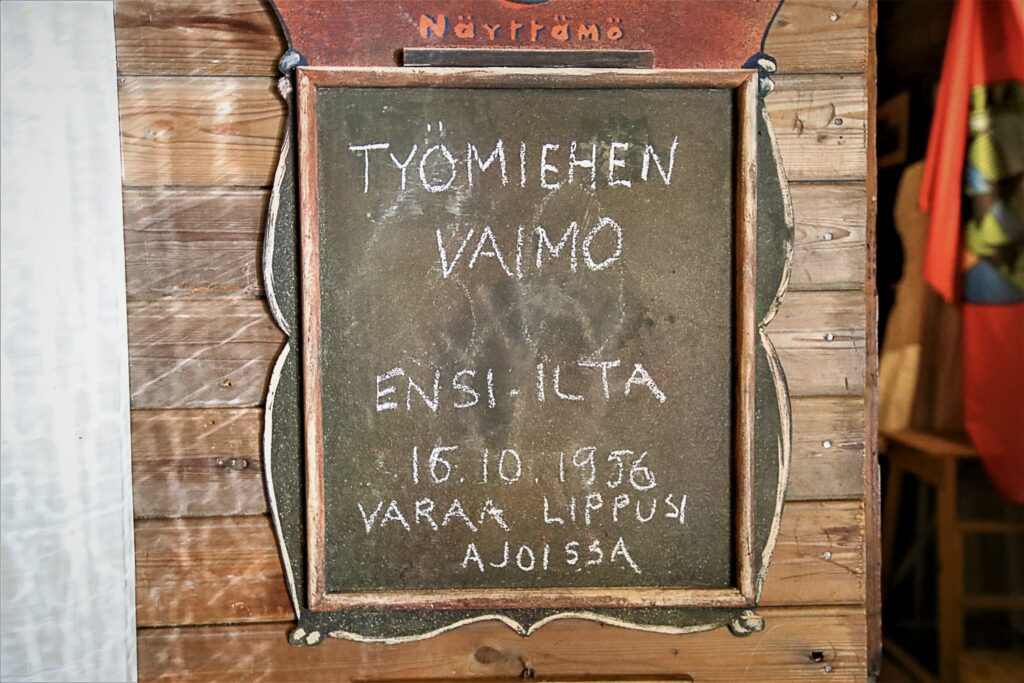 Näyttämö
TYÖMIEHEN
VAIMO
ENSI-ILTA
16.10.1956
VARAA LIPPUSI
AJOISSA